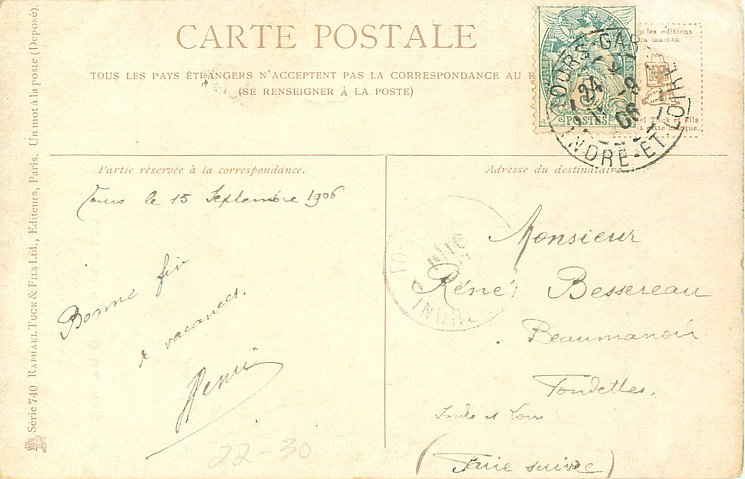 CARTE POSTALE
TOUS LES PAYS ÉTRANGERS N'ACCEPTENT PAS LA CORRESPONDANCE AU
(SE RENSEIGNER À LA POSTE)
les éditions
maison
Tuck et Fils
cette marque.
POSTES
TOURS-GARE
24
-9
06
INDRE-ET-LOIRE
Partie réservée à la correspondance.
Adresse du destinataire.
Tours le 15 Septembre 1906
Bonne fin
vacances.
Henri
22-30
16
INDRE
Monsieur
René Bessereau
Beaumanoir
Fondettes.
Indre et Loire
(Faire suivre)
Serie 740 RAPHAEL TUCK & FILS Ltd., Editeurs, Paris. Un mot à la poste (Deposé).